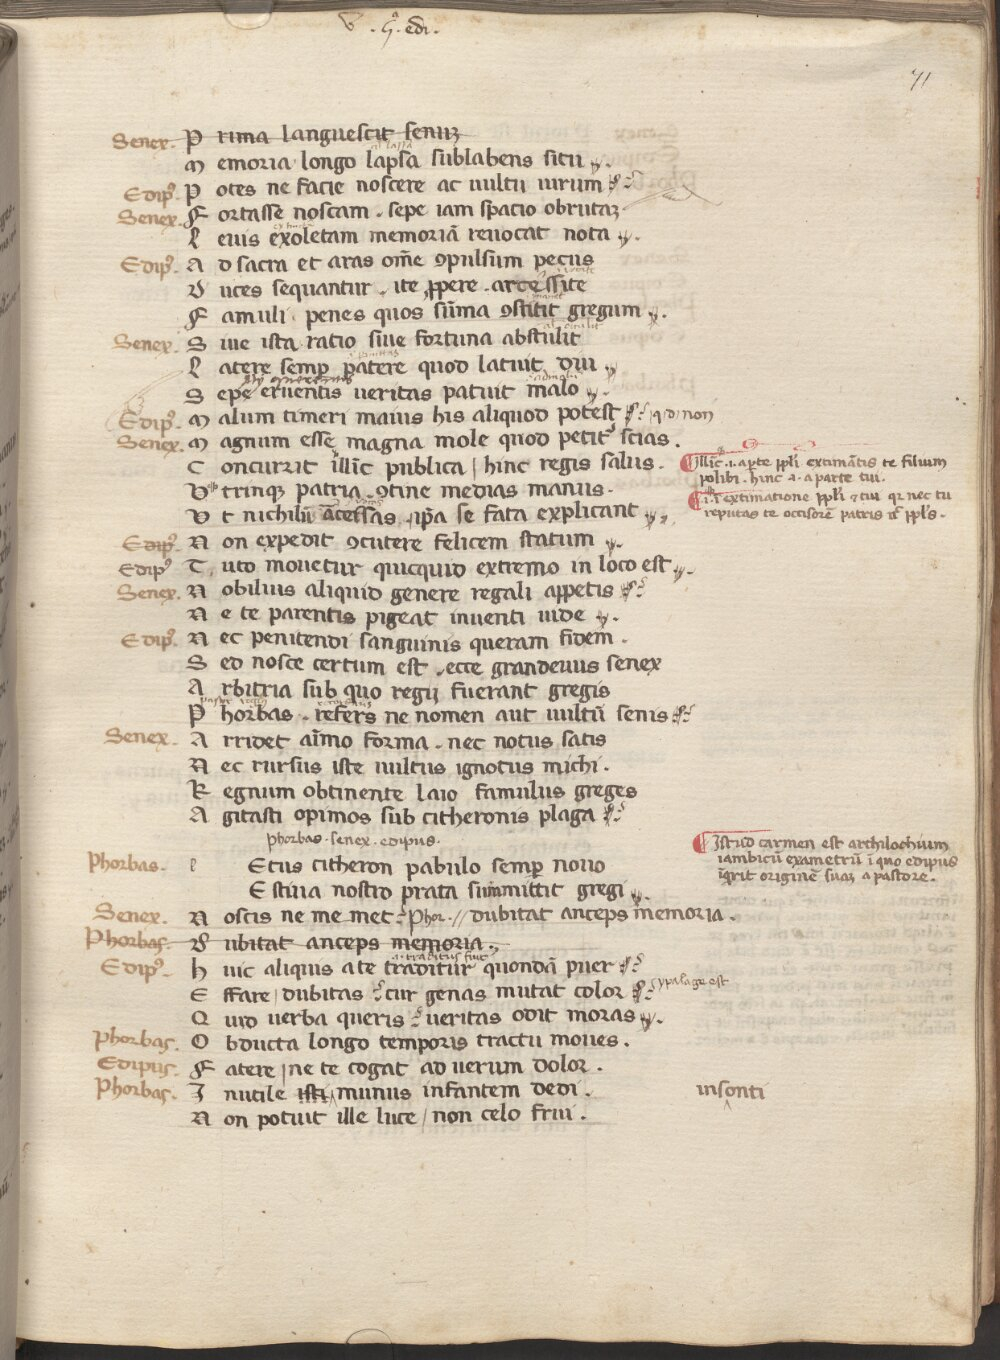 71
Senex. P rima languescit seniũ
M emoria longo lapsa sublabens situ
Edipꝰ. P otes ne facie noscere ac uultu uirum
Senex. F ortasse noscam . sepe iam spacio obrutaz
L euis exoletam memoriã reuocat nota
Edipꝰ. A d sacra et aras om̃e ꝯpulsum pecus
D uces sequantur . ite ꝓpere . arcessite
F amuli penes quos sum̃a ꝯstitit gregum
Senex. S iue ista ratio siue fortuna abstulit
L atere semꝑ patere quod latuit diu
S epe eruentis ueritas patuit malo
Edipꝰ. M alum timeri maius his aliquod potest
Senex. M agnum esse magna mole quod petitᷣ scias .
C oncurrit illic publica / hinc regis salus .
V trinqꝫ patria . ꝯtine medias manus .
V t nichil ãcessas . ip̃a se fata explicant
Edipꝰ. N on expedit ꝯcutere felicem statum
Edipꝰ T uto mouetur quicquid extremo in loco est
Senex. N obilius aliquid genere regali appetis
N e te parentis pigeat inuenti uide
Edipꝰ. N ec penitendi sanguinis queram fidem .
S ed nosce certum est . ecce grandeuus senex
A rbitria sub quo regij fuerant gregis
P horbas . refers ne nomen aut uultũ senis
Senex. A rridet aĩmo forma . nec notus satis
N ec rursus iste uultus ignotus michi .
R egnum obtinente laio famulus greges
A gitasti opimos sub citheronis plaga
phorbas . senex . edipus .
Phorbas. l Etus citheron pabulo semꝑ nouo
E stiua nostro prata summittit gregi
Senex. N oscis ne me met Phor. // dubitat anceps memoria .
Phorbas. D ubitat anceps memoria .
Edipꝰ. h uic aliquis a te traditur quondã puer
E ffare / dubitas cur genas mutat color
Q uid uerba queris ueritas odit moras
Phorbas. O bducta longo temporis tractu moues .
Edipus. F atere / ne te cogat ad uerum dolor .
Phorbas. I nutile isti munus infantem dedi .
N on potuit ille luce / non celo frui .
Illic .i. a ꝑte ppli extimãtis te filium
polibi . hinc .i. a parte tui .
.i. ĩ extimatione ppli ⁊ tui qꝛ nec tu
reputas te occisorẽ patris
Istud carmen est archilochium
iambicũ exametrũ ĩ quo edipus
ĩq̃rit originẽ suaz a pastore .
ypalage est
insonti